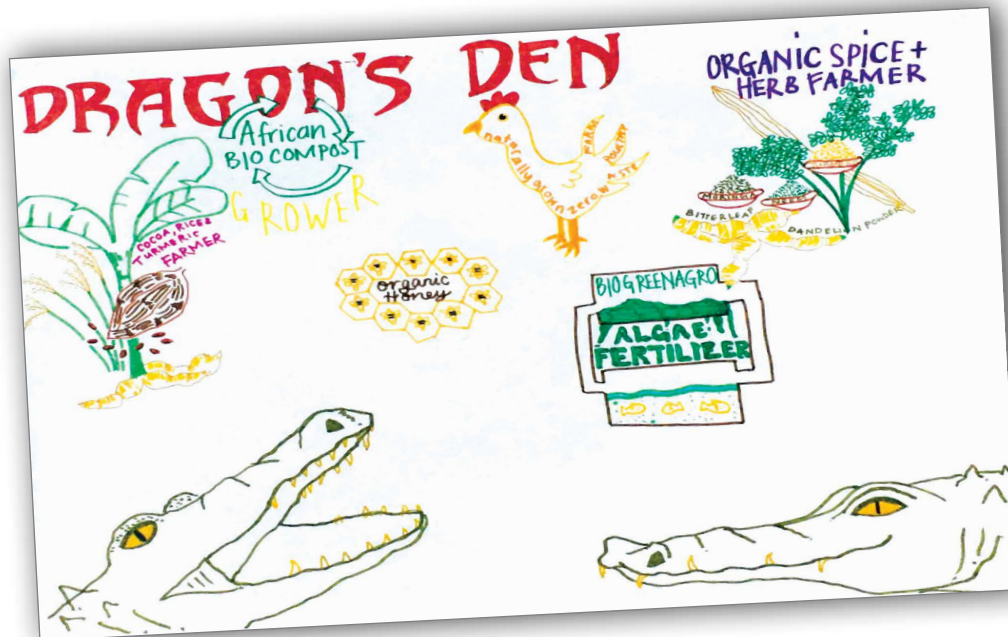 DRAGON'S DEN
African
BIO COMPOST
GROWER
COCOA, RICE &
TURMERIC
FARMER
naturally grown zero waste
POULTRY
ORGANIC SPICE +
HERB FARMER
MORINGA
BITTERLEAF
DANDELION POWDER
organic
Honey
BIOGREENAGRO
ALGAE
FERTILIZER